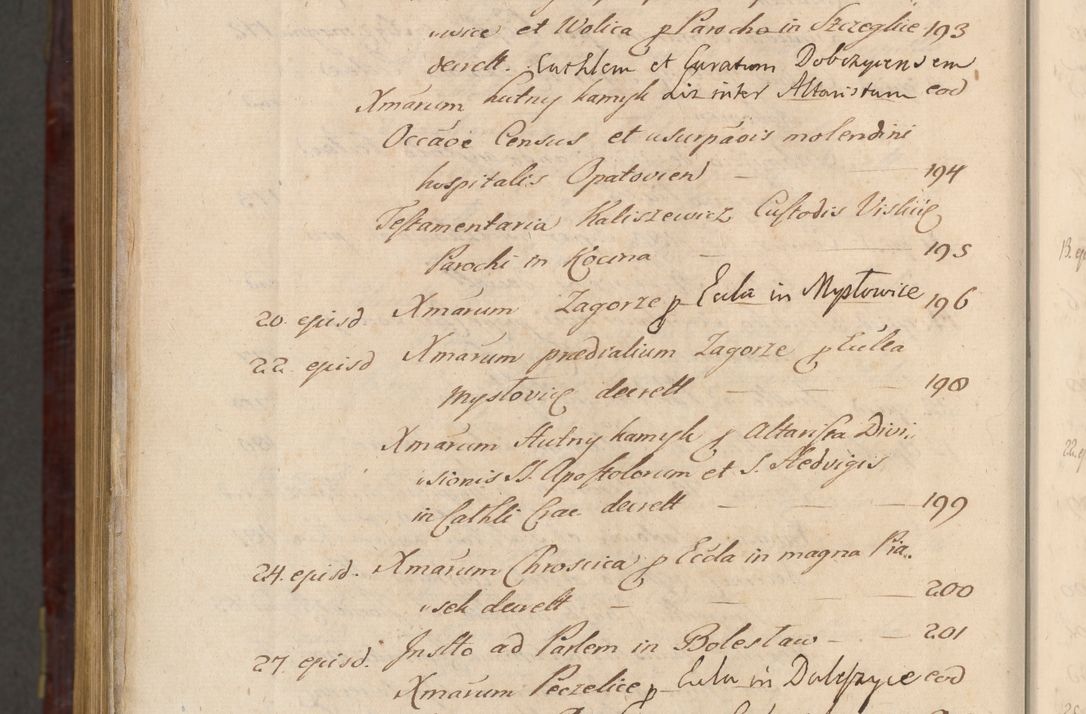 usice et Wolica p Parocho in Szczeglice 193
decrett. Cuthlem et Curatum Dobczycensem
Xmarum hutny kamyk Lis inter Altaristam eod
Occãoe Census et usurpãois molendini
hospitalis Opatovien – 194
Testamentaria Kaliszewicz Custodis Vislicii
Parochi in Kocina – 195
20 ejusd Xmarum Zagorze p Eccla in Mysłowice 196
22. ejusd Xmarum prædialium Zagorze p Eccla
Mysłovic decrett – 198
Xmarum Hutny kamyk p Altarista Divi,,
,,sionis SS. Apostolorum et S. Hedvigis
in Cathli Crac. decrett – 199
24. ejusd. Xmarum Chroscica p Eccla in magna Pia,,
,,sek decrett – 200
27. ejusd. Instto ad Parlem in Bolesław – 201
Xmarum Peczelice p Eccla in Dobczyce eod